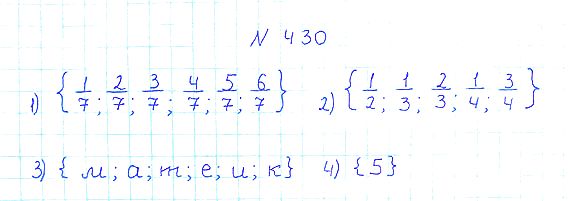 N 430
1) {1/7; 2/7; 3/7; 4/7; 5/7; 6/7} 2) {1/2; 1/3; 2/3; 1/4; 3/4}
3) {м; а; т; е; и; к} 4) {5}